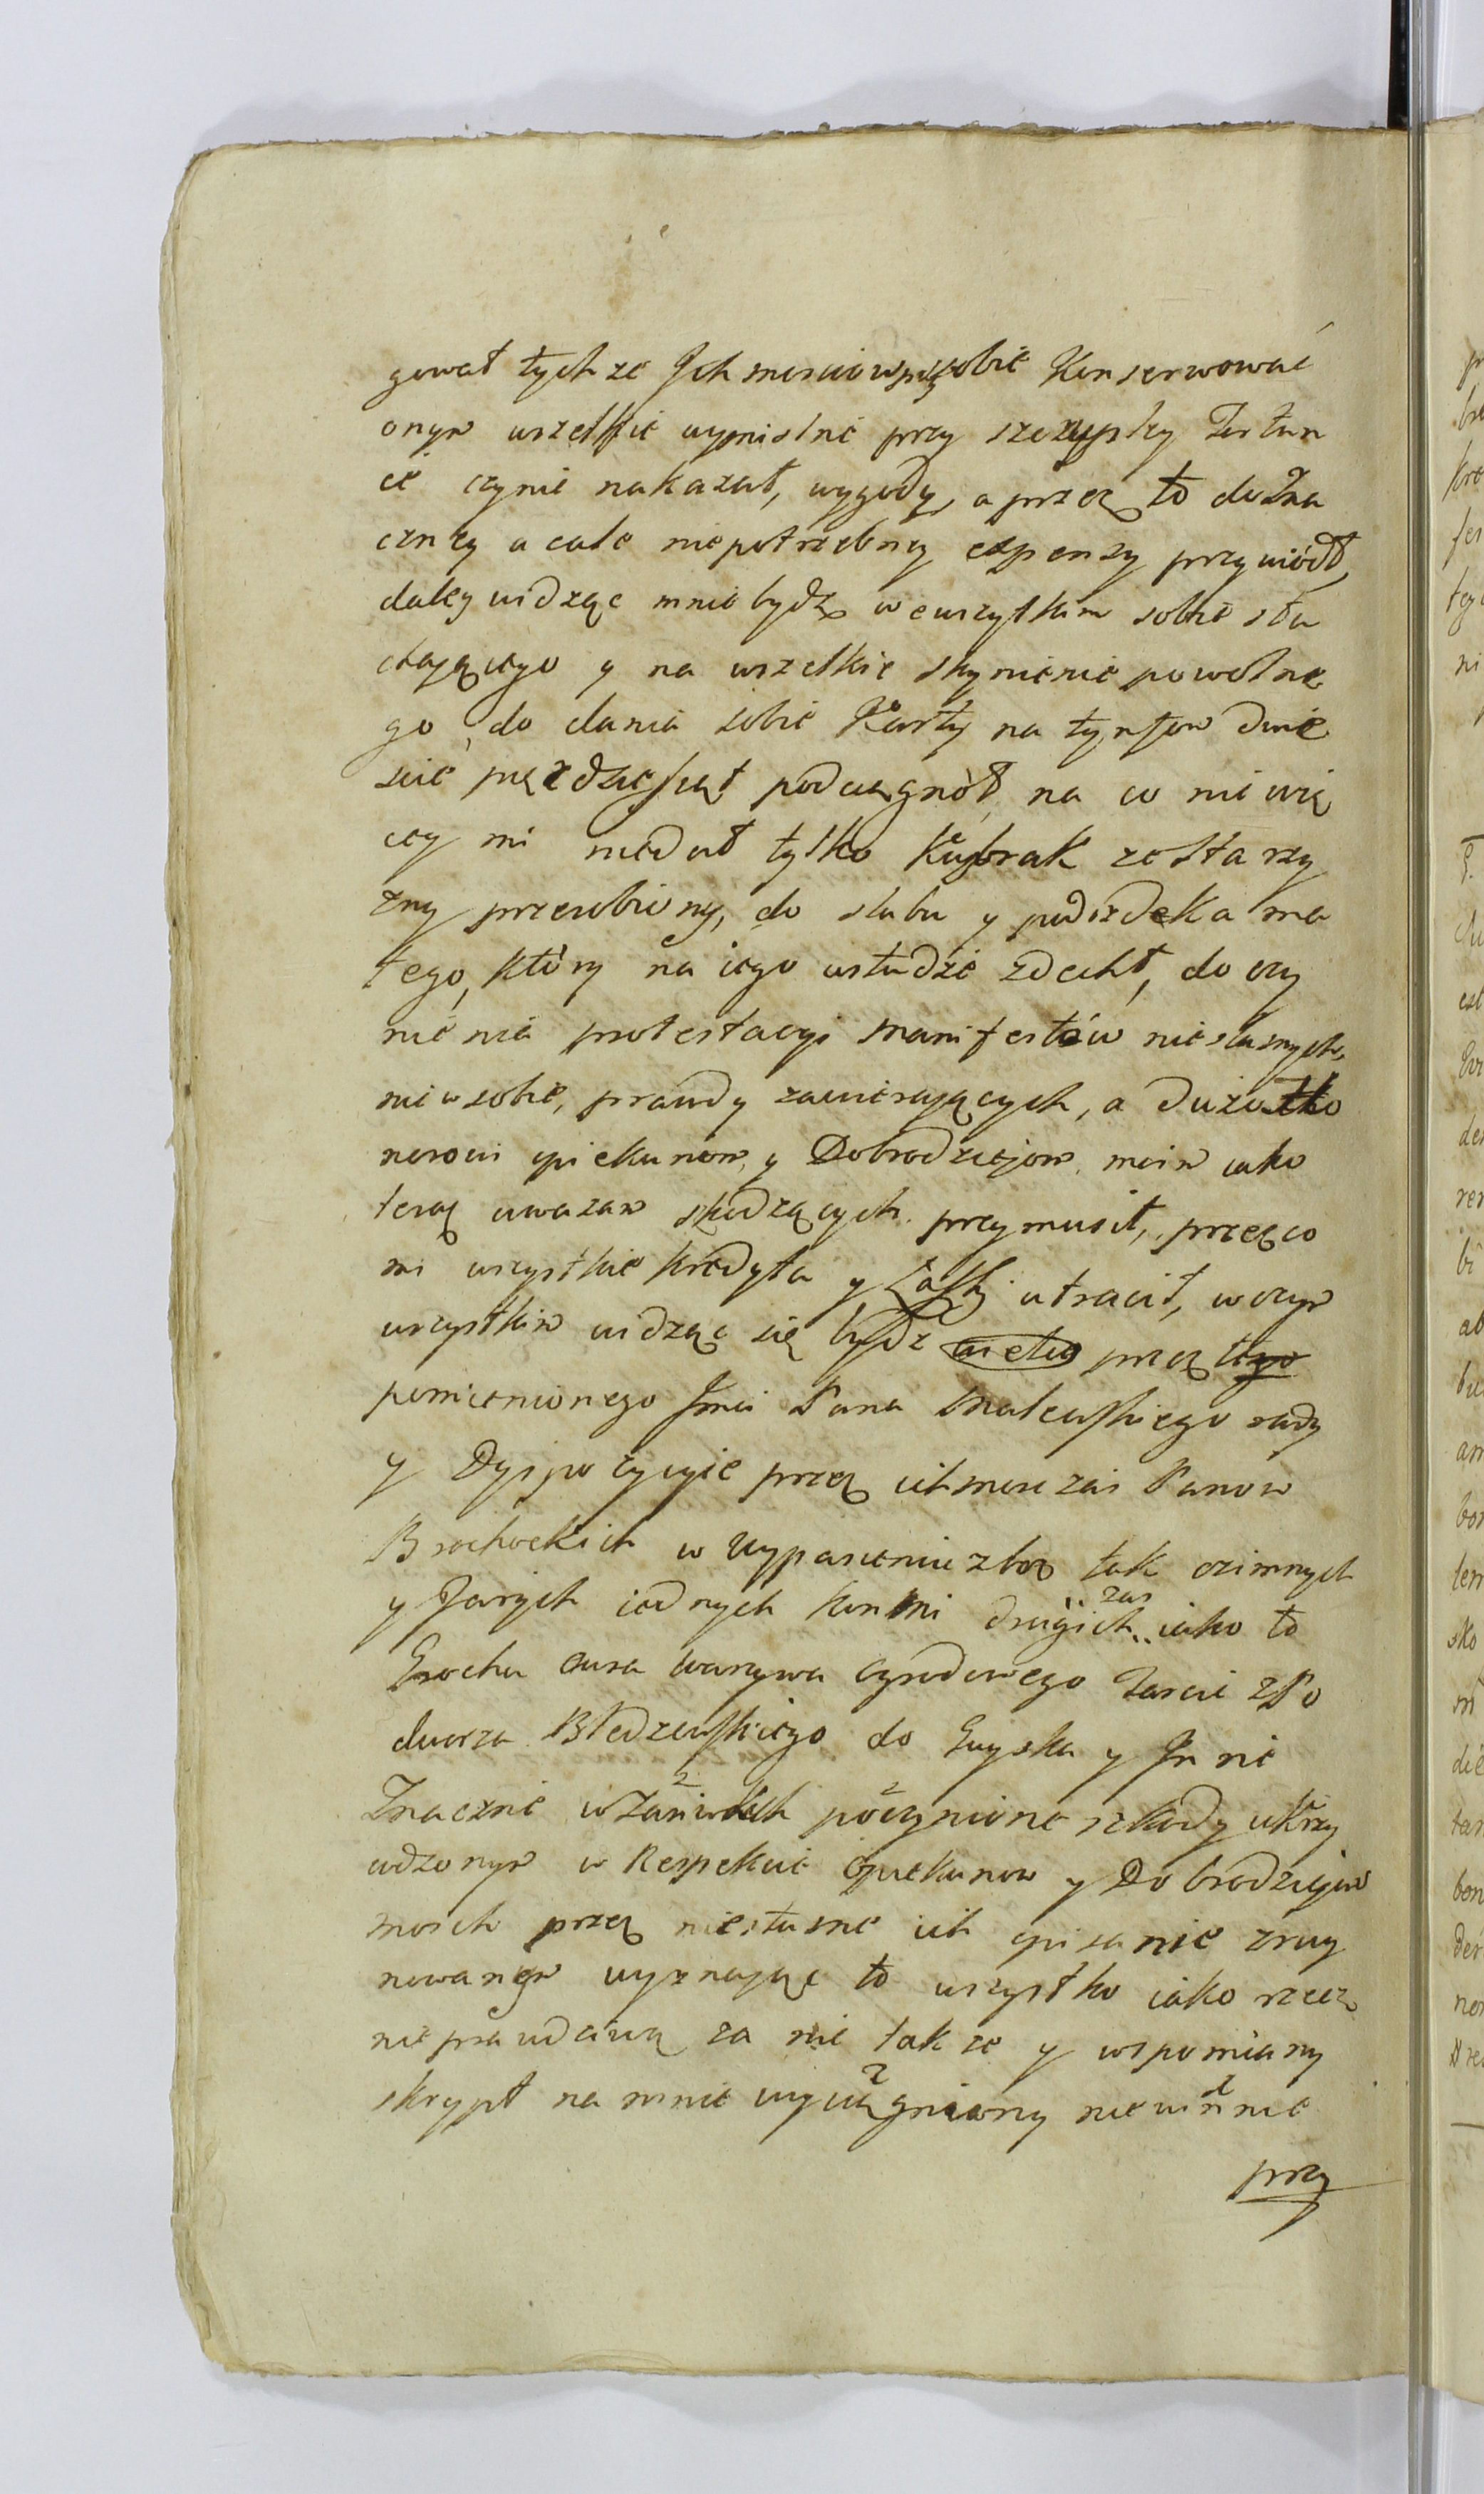 gował tychze Ich mosciow przy sobie Konserwować
onym wszelkie wymislne przy szczupłey Fortun
ie czynic nakazał, wygody, a przez to do Zna
czney a cale niepotrzebney expensy przywiódł,
daley widząc mnie bydź we wszytkim sobie słu
chającego y na wszelkie skynienie powolne
go, do dania sobie Karty na tynfow dwie
scie pięzdziesiąt podciągnoł, na co nic wię
cey mi niedał tylko Kubrak ze starzy
zny przerobiony, do slubu y podiezdka ma
łego, który na iego usłudze zdechł, do czy
nienia protestacyi manifestów niesłusznych,
nic w sobie, prawdy zawieraiących, a dużo Ho
norowi opiekunow, y Dobrodzieiow, moim iako
teraz uwazam szkodzących. przymusił, przez co
mi wszystkie kredyta y Łaski utracił, w czym
wszystkim widząc się bydz przez tego
pomienionego Jmci Pana Malewskiego rady
y Dyspozycyie przez ich mosciow zas Panow
Brochockich w Wypasieniu zboz tak ozimnych
y Jarych iednych konmi drugich zas iako to
Grochu warzywa ogrodowego Zarcie z Po
dworza Bledzewskiego do Guyska y Inne
Znacznie poczynione szkody ukrzy
wdzonym w Respekcie Opiekunow y Dobrodzieiow
moich przez niesłuszne ich opisanie zruy
nowanym wyznaiąc to wszystko iako rzecz
nieprawdziwą za nic takze y wspomiany
skrypt na mnie wyciągniony niewinnie
przy